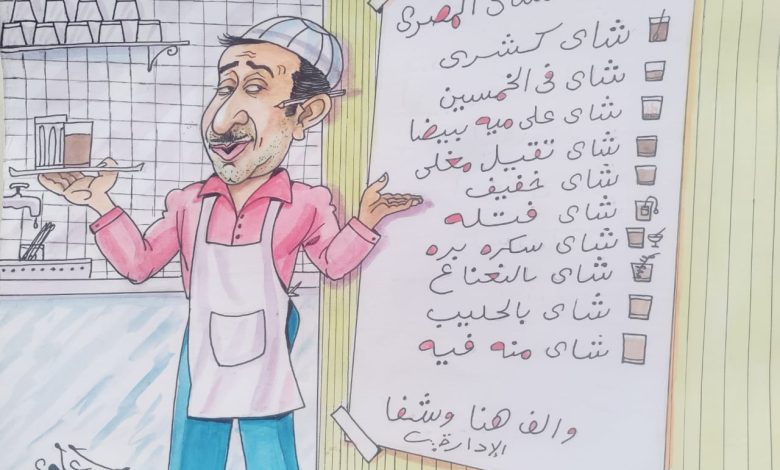 شاى المصرى
شاى كشرى
شاى فى الخمسين
شاى على ميه بيضا
شاى تقيل مغلى
شاى خفيف
شاى فتله
شاى سكره بره
شاى بالنعناع
شاى بالحليب
شاى منه فيه
والف هنا وشفا
الادارة